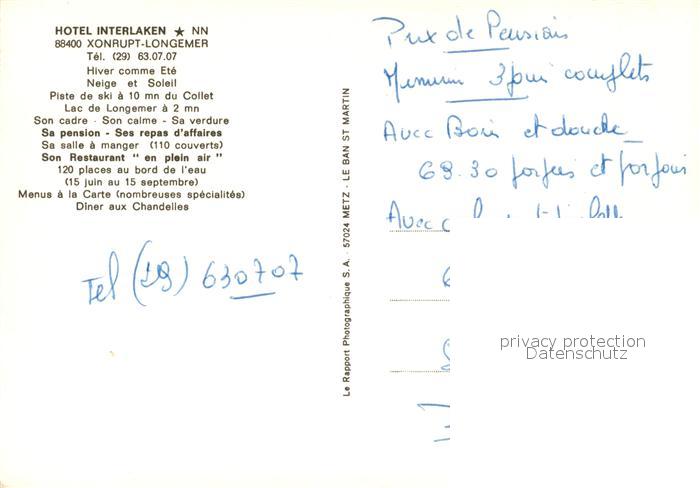 HOTEL INTERLAKEN ★ NN
88400 XONRUPT-LONGEMER
Tél. (29) 63.07.07
Hiver comme Eté
Neige et Soleil
Piste de ski à 10 mn du Collet
Lac de Longemer à 2 mn
Son cadre - Son calme - Sa verdure
Sa pension - Ses repas d'affaires
Sa salle à manger (110 couverts)
Son Restaurant " en plein air "
120 places au bord de l'eau
(15 juin au 15 septembre)
Menus à la Carte (nombreuses spécialités)
Dîner aux Chandelles
Tel (29) 630707
Le Rapport Photographique S.A. 57024 METZ - LE BAN ST MARTIN
Prix de Pension
3 jours complets
Avec Bain et douche
69.30 par jour et par jour
Avec
privacy protection
Datenschutz